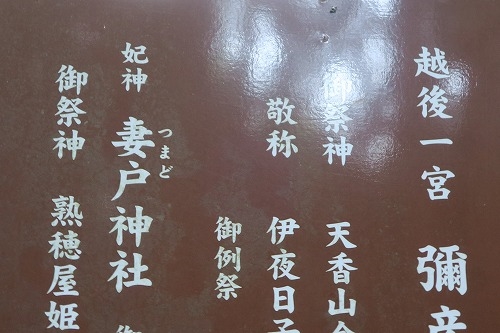 越後一宮 彌彦
御祭神 天香山命
敬称 伊夜日子
御例祭
妃神 妻戸神社 御
つまど
御祭神 熟穂屋姫